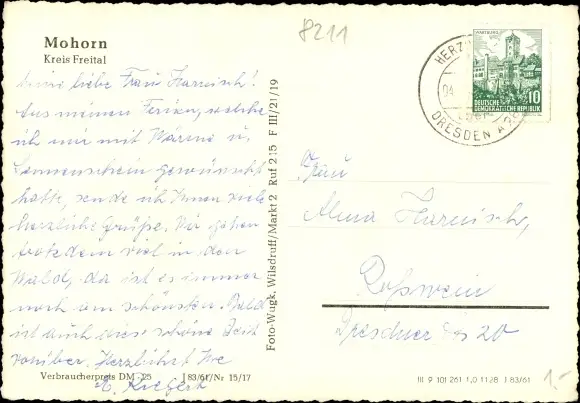 8211
Mohorn
Kreis Freital
Meine liebe Frau Harnisch!
Aus meinen Ferien, welche
ich mir mit Wärme u.
Sonnenschein gewünscht
hatte, sende ich Ihnen viele
herzliche Grüße. Wir gehen
trotzdem viel in den
Wald, da ist es immer
noch am schönsten. Bald
ist auch diese schöne Zeit
vorüber. Herzlichst Ihre
Verbraucherpreis DM -,25 J 83/61/Nr 15/17
Foto-Wugk, Wilsdruff/Markt 2 Ruf 215 F III/21/19
WARTBURG
DEUTSCHE
DEMOKRATISCHE REPUBLIK
10
HERZ
04
DRESDEN A
Frau
Alma Harnisch,
Roßwein
Dresdner 20
III 9 101 261 1,0 1128 J 83/61
1.-